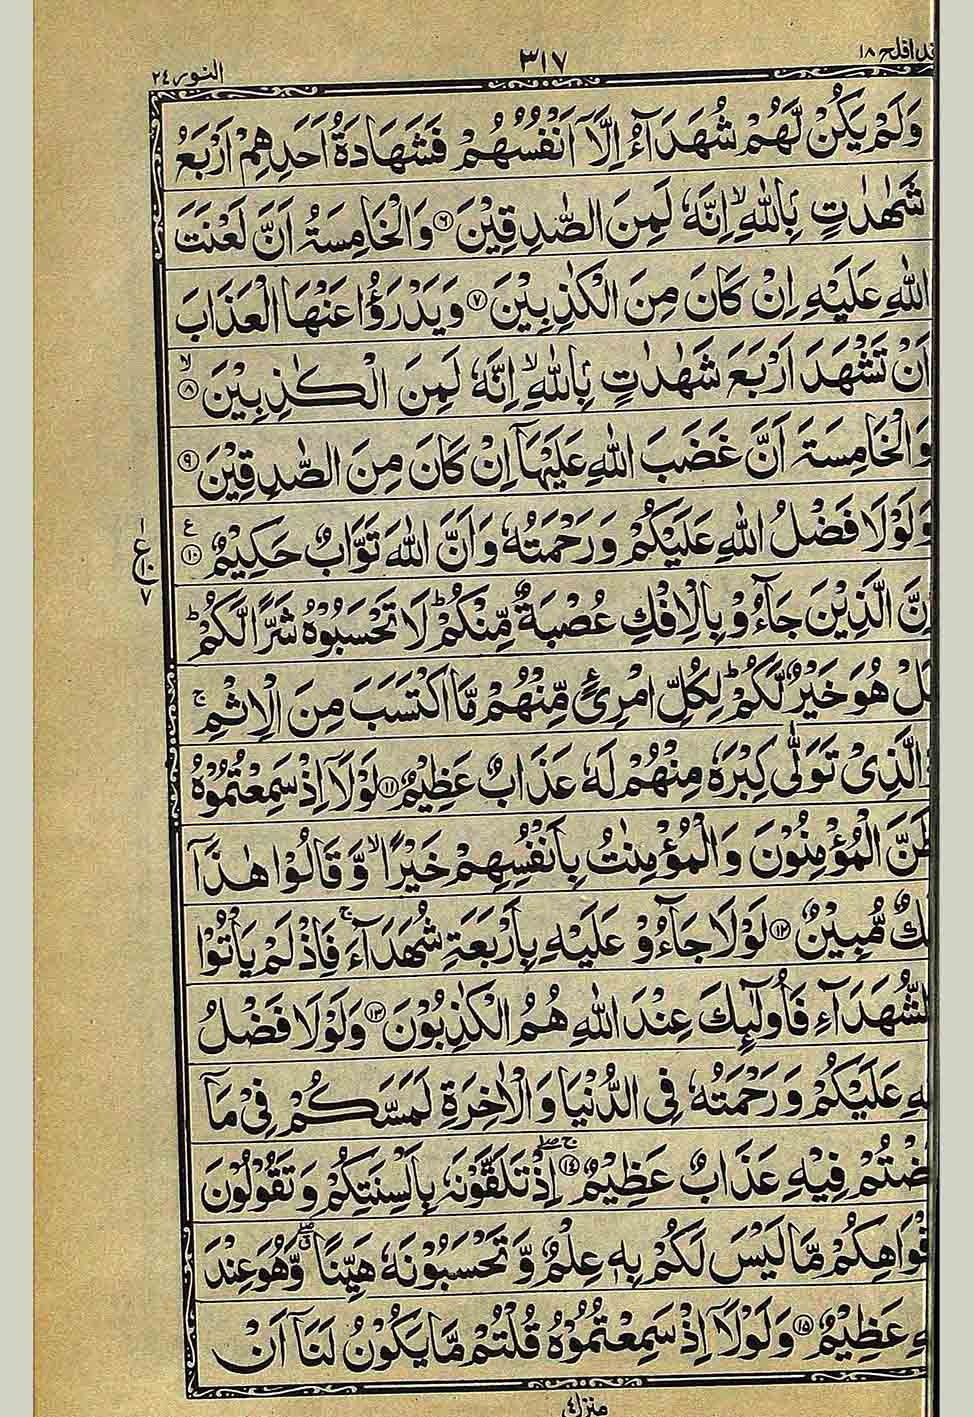 قد افلح ١٨
٣١٧
النور ٢٤
وَلَمْ يَكُنْ لَّهُمْ شُهَدَآءُ اِلَّاۤ اَنْفُسُهُمْ فَشَهَادَةُ اَحَدِهِمْ اَرْبَعُ
شَهٰدٰتٍۭ بِاللّٰهِ ۙ اِنَّهٗ لَمِنَ الصّٰدِقِيْنَ ۝٦ وَالْخَامِسَةُ اَنَّ لَعْنَتَ
اللّٰهِ عَلَيْهِ اِنْ كَانَ مِنَ الْكٰذِبِيْنَ ۝٧ وَيَدْرَؤُا عَنْهَا الْعَذَابَ
اَنْ تَشْهَدَ اَرْبَعَ شَهٰدٰتٍۭ بِاللّٰهِ ۙ اِنَّهٗ لَمِنَ الْكٰذِبِيْنَ ۙ۝٨
وَالْخَامِسَةَ اَنَّ غَضَبَ اللّٰهِ عَلَيْهَاۤ اِنْ كَانَ مِنَ الصّٰدِقِيْنَ ۝٩
وَلَوْلَا فَضْلُ اللّٰهِ عَلَيْكُمْ وَرَحْمَتُهٗ وَاَنَّ اللّٰهَ تَوَّابٌ حَكِيْمٌ ۝١٠ ع
١
ع
١٠
٧
نَّ الَّذِيْنَ جَآءُوْ بِالْاِفْكِ عُصْبَةٌ مِّنْكُمْ ؕ لَا تَحْسَبُوْهُ شَرًّا لَّكُمْ ؕ
بَلْ هُوَ خَيْرٌ لَّكُمْ ؕ لِكُلِّ امْرِئٍ مِّنْهُمْ مَّا اكْتَسَبَ مِنَ الْاِثْمِ ۚ
وَالَّذِيْ تَوَلّٰى كِبْرَهٗ مِنْهُمْ لَهٗ عَذَابٌ عَظِيْمٌ ۝١١ لَوْلَاۤ اِذْ سَمِعْتُمُوْهُ
ظَنَّ الْمُؤْمِنُوْنَ وَالْمُؤْمِنٰتُ بِاَنْفُسِهِمْ خَيْرًا ۙ وَّقَالُوْا هٰذَاۤ
كٌ مُّبِيْنٌ ۝١٢ لَوْلَا جَآءُوْ عَلَيْهِ بِاَرْبَعَةِ شُهَدَآءَ ۚ فَاِذْ لَمْ يَاْتُوْا
لشُّهَدَآءِ فَاُولٰٓئِكَ عِنْدَ اللّٰهِ هُمُ الْكٰذِبُوْنَ ۝١٣ وَلَوْلَا فَضْلُ
هِ عَلَيْكُمْ وَرَحْمَتُهٗ فِي الدُّنْيَا وَالْاٰخِرَةِ لَمَسَّكُمْ فِيْ مَاۤ
ضْتُمْ فِيْهِ عَذَابٌ عَظِيْمٌ ۝١٤ اِذْ تَلَقَّوْنَهٗ بِاَلْسِنَتِكُمْ وَتَقُوْلُوْنَ
فْوَاهِكُمْ مَّا لَيْسَ لَكُمْ بِهٖ عِلْمٌ وَّتَحْسَبُوْنَهٗ هَيِّنًا ۖ وَّهُوَ عِنْدَ
هِ عَظِيْمٌ ۝١٥ وَلَوْلَاۤ اِذْ سَمِعْتُمُوْهُ قُلْتُمْ مَّا يَكُوْنُ لَنَاۤ اَنْ
منزل ٤